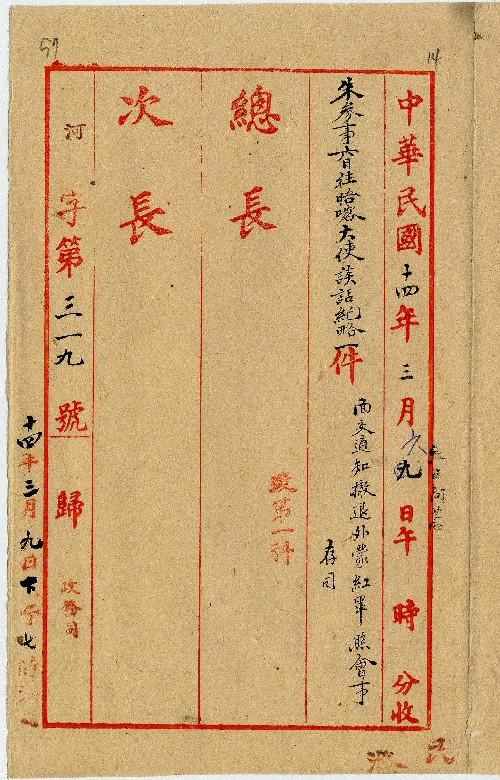 中華民國十四年三月九日午時分收
朱參事廿日往晤喀大使談話紀略一件
面交通知撤退外蒙紅軍照會事
存司
政第一科
總長
次長
河字第三一九號歸政務司
十四年三月九日下午七時
57
14